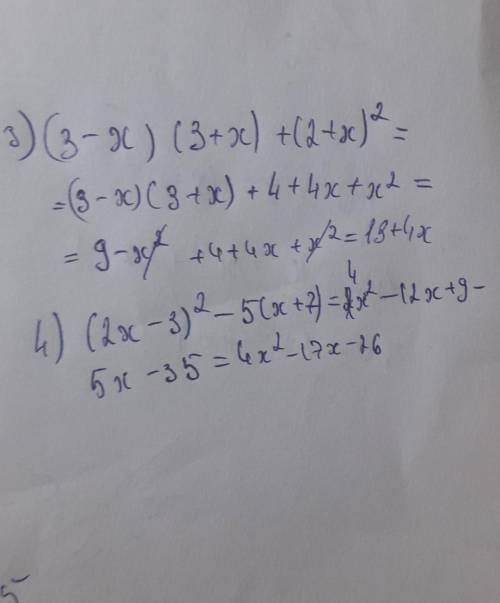 3) (3 - x) (3 + x) + (2 + x)² =
= (3 - x) (3 + x) + 4 + 4x + x² =
= 9 - x² + 4 + 4x + x² = 13 + 4x
4) (2x - 3)² - 5(x + 7) = 4x² - 12x + 9 -
5x - 35 = 4x² - 17x - 26
5